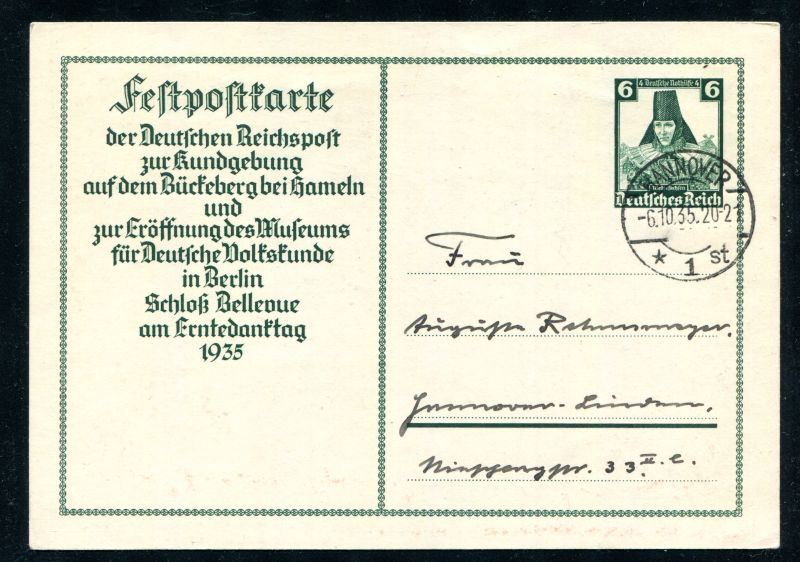 Festpostkarte
der Deutschen Reichspost
zur Kundgebung
auf dem Bückeberg bei Hameln
und
zur Eröffnung des Museums
für Deutsche Volkskunde
in Berlin
Schloß Bellevue
am Erntedanktag
1935
6 4 Deutsche Nothilfe 4 6
Deutsches Reich
HANNOVER 1
-6.10.35.20-21
* 1 st
Frau
Auguste
Hannover-Linden,
33 II. l.